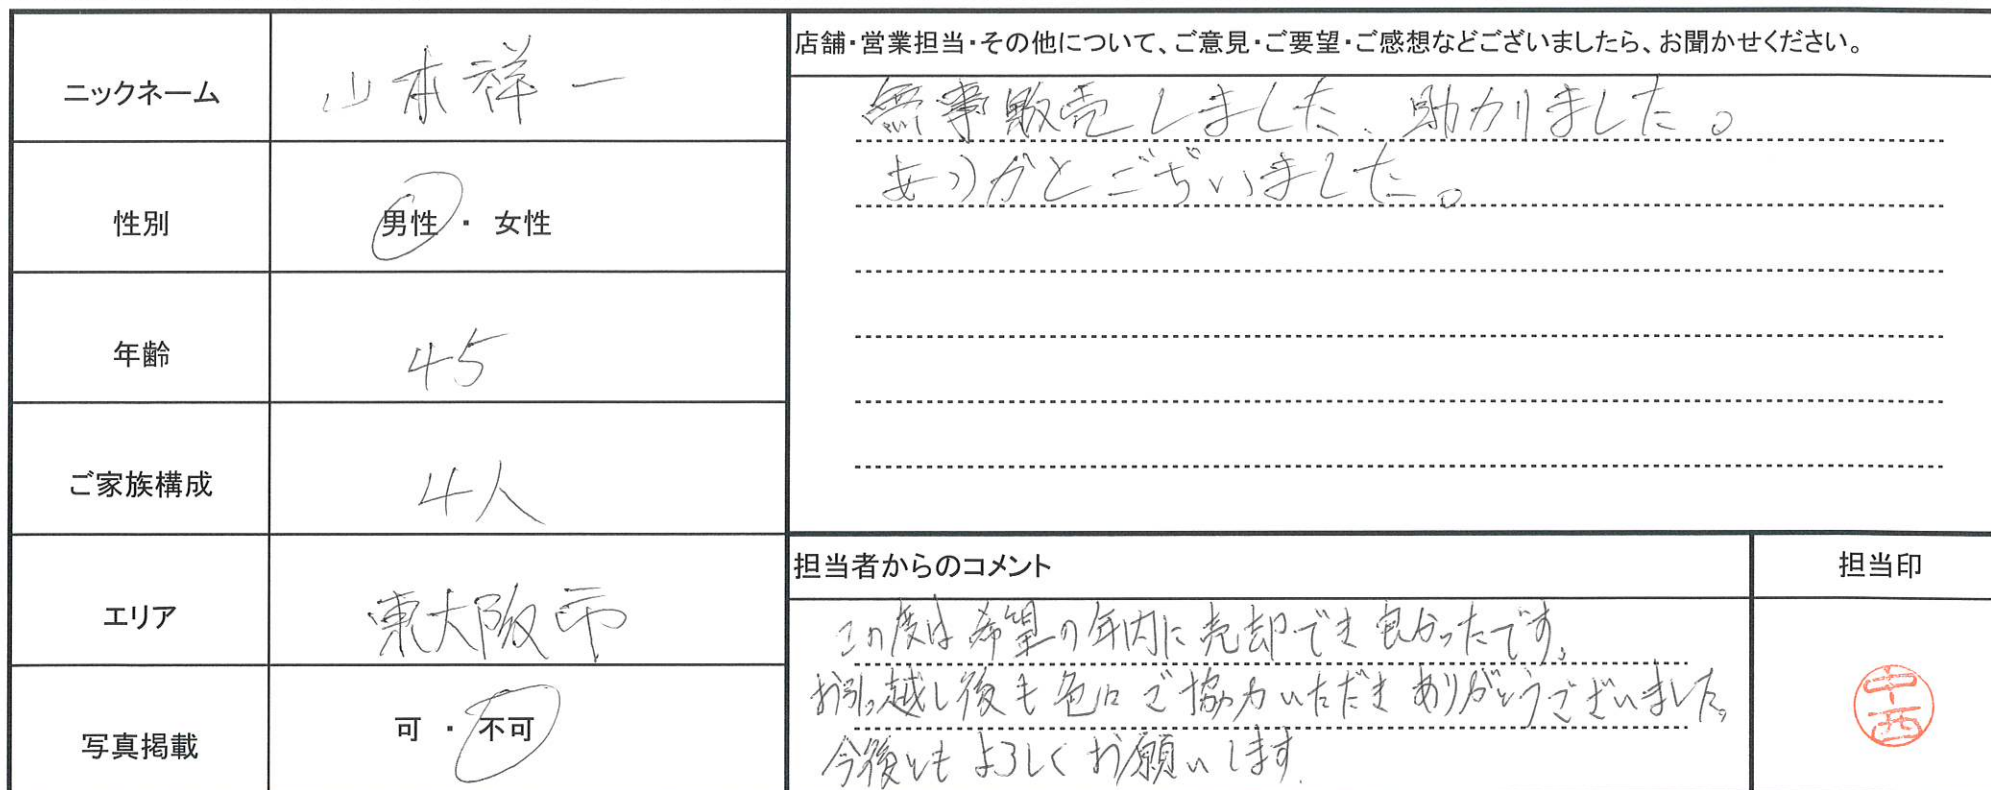 ニックネーム 山本祥一
性別 男性 ・ 女性
年齢 45
ご家族構成 4人
エリア 東大阪市
写真掲載 可 ・ 不可
店舗・営業担当・その他について、ご意見・ご要望・ご感想などございましたら、お聞かせください。
無事販売しました、助かりました。
ありがとございました。
担当者からのコメント
この度は希望の年内に売却でき良かったです。
お引っ越し後も色々ご協力いただきありがとうございました。
今後ともよろしくお願いします.
担当印
中西